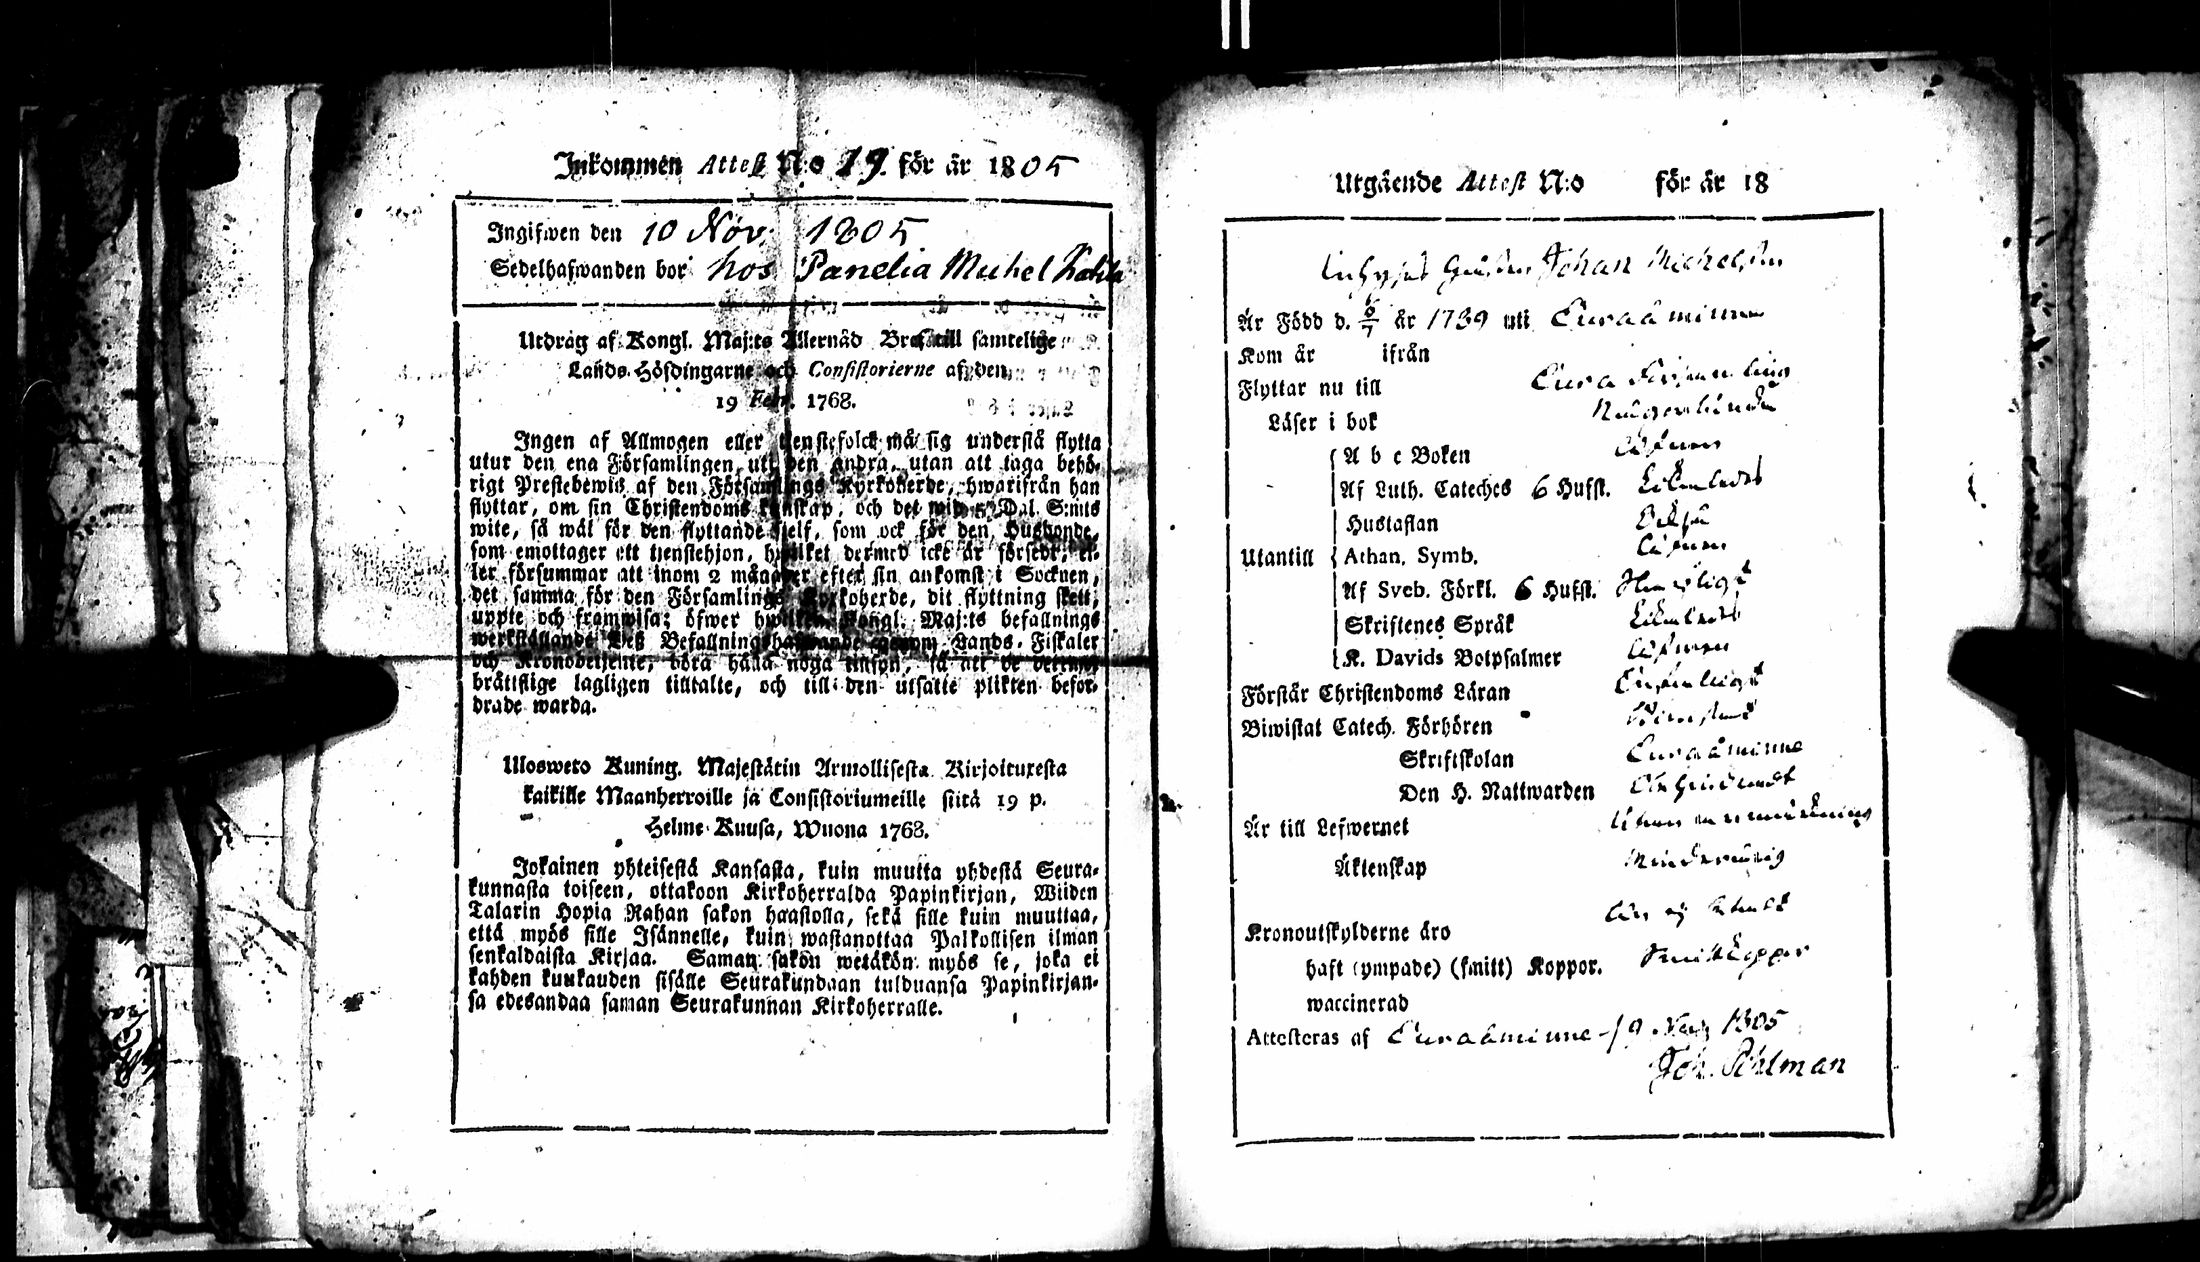 Inkommen Attest N:o 19. för år 1805
Ingifwen den 10 Nov. 1805
Sedelhafwanden bor hos Panelia Michel Kahila
Utdrag af Kongl. Maj:ts Allernåd Bref till samtelige
Lands-Höfdingarne och Consistorierne af den
19 Febr. 1768.
Ingen af Allmogen eller tjenstefolck må sig understå flytta
utur den ena Församlingen uti den andra, utan att taga behö-
rigt Prestebewis af den Församlings Kyrkoherde, hwarifrån han
flyttar, om sin Christendoms kunskap, och det wid 5 Dal. S:mts
wite, så wäl för den flyttande sjelf, som ock för den Husbonde,
som emottager ett tjenstehjon, hwilket dermed icke är försedt, el-
ler försummar att inom 2 månader efter sin ankomst i Socknen,
det samma för den Församlings Kyrkoherde, dit flyttning skett,
uppte och framwisa; öfwer hwilken Kongl. Maj:ts befallnings
werkställande Deß Befallningshafwande genom Lands-Fiskaler
och Kronobetjente, böra hålla noga insyn, så att de
bråttslige lagligen tilltalte, och till den utsatte plikten befor-
drade warda.
Ulosweto Kuning. Majestätin Armollisesta Kirjoituxesta
kaikille Maanherroille ja Consistoriumeille siitä 19 p.
Helme-Kuusa, Wuona 1768.
Jokainen yhteisestä Kansasta, kuin muutta yhdestä Seura-
kunnasta toiseen, ottakoon Kirkoherralda Papinkirjan, Wiiden
Talarin Hopia Rahan sakon haastolla, sekä sille kuin muuttaa,
että myös sille Isännelle, kuin wastanottaa Palkollisen ilman
senkaldaista Kirjaa. Saman sakon wetäkön myös se, joka ei
kahden kuukauden sisälle Seurakundaan tulduansa Papinkirjan-
sa edesandaa saman Seurakunnan Kirkoherralle.
Utgående Attest N:o för år 18
Gossen Johan Michelsson
Är Född d. 6/7 år 1789 uti Euraåminne
Kom år ifrån
Flyttar nu till Eura
Läser i bok Någorlunda
A b c Boken
Af Luth. Cateches 6 Hufst. Likaledes
Hustaflan
Utantill Athan. Symb.
Af Sveb. Förkl. 6 Hufst.
Skriftenes Språk Likaledes
K. Davids Botpsalmer
Förstår Christendoms Läran
Biwistat Catech. Förhören
Skriftskolan Euraåminne
Den H. Nattwarden
Är till Lefwernet utan anmärkning
Äktenskap Minderårig
Kronoutskylderne äro
haft (ympade) (smitt) Koppor. Smittkoppor
waccinerad
Attesteras af Euraåminne d 9 Nov. 1805
Joh. Pihlman